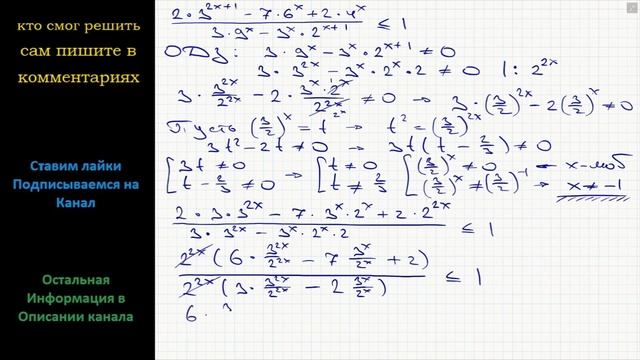 кто смог решить
сам пишите в
комментариях
Ставим лайки
Подписываемся на
Канал
Остальная
Информация в
Описании канала
(2·3^(2x+1) − 7·6^x + 2·4^x) / (3·9^x − 3^x·2^(x+1)) ≤ 1
ОДЗ: 3·9^x − 3^x·2^(x+1) ≠ 0
3·3^(2x) − 3^x·2^x·2 ≠ 0 |: 2^(2x)
3·3^(2x)/2^(2x) − 2·(3^x·2^x)/2^(2x) ≠ 0 → 3·(3/2)^(2x) − 2(3/2)^x ≠ 0
Пусть (3/2)^x = t → t² = (3/2)^(2x)
3t² − 2t ≠ 0 → 3t(t − 2/3) ≠ 0
[3t ≠ 0 → [t ≠ 0 [(3/2)^x ≠ 0 ← x - люб
[t − 2/3 ≠ 0 [t ≠ 2/3 [(3/2)^x ≠ (3/2)^(−1) → x ≠ −1
(2·3·3^(2x) − 7·3^x·2^x + 2·2^(2x)) / (3·3^(2x) − 3^x·2^x·2) ≤ 1
2^(2x)(6·3^(2x)/2^(2x) − 7 3^x/2^x + 2) / 2^(2x)(3·3^(2x)/2^(2x) − 2 3^x/2^x) ≤ 1
6·3